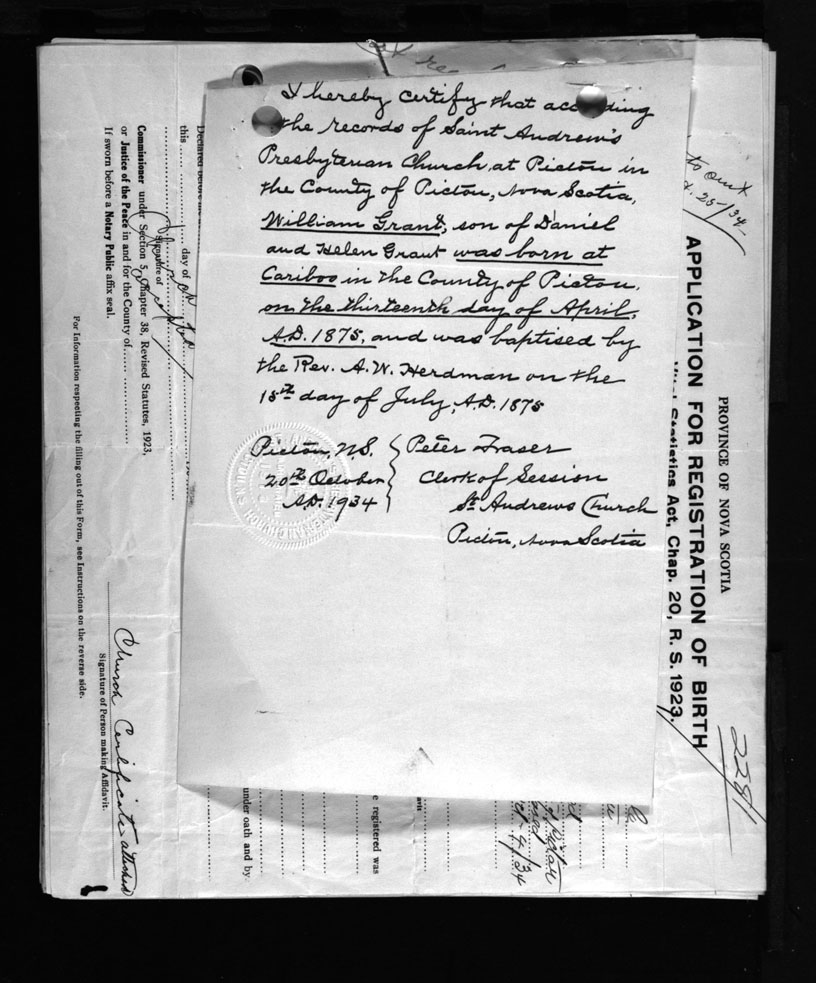 I hereby certify that according
the records of Saint Andrew's
Presbyterian Church, at Pictou in
the County of Pictou, Nova Scotia,
William Grant, son of Daniel
and Helen Grant was born at
Cariboo in the County of Pictou,
on the thirteenth day of April,
A.D. 1875, and was baptised by
the Rev. A. W. Herdman on the
15th day of July, A.D. 1875
Pictou, N.S.
20th October
A.D. 1934
Peter Fraser
Clerk of Session
St. Andrews Church
Pictou, Nova Scotia
PROVINCE OF NOVA SCOTIA
APPLICATION FOR REGISTRATION OF BIRTH
Statistics Act, Chap. 20, R. S. 1923.
2281
25/34
e registered was
under oath and by
Declared before
this day of
Signature of
Commissioner under Section 5, Chapter 38, Revised Statutes, 1923,
or Justice of the Peace in and for the County of
If sworn before a Notary Public affix seal.
Church Certificate attached
Signature of Person making Affidavit.
For Information respecting the filling out of this Form, see Instructions on the reverse side.